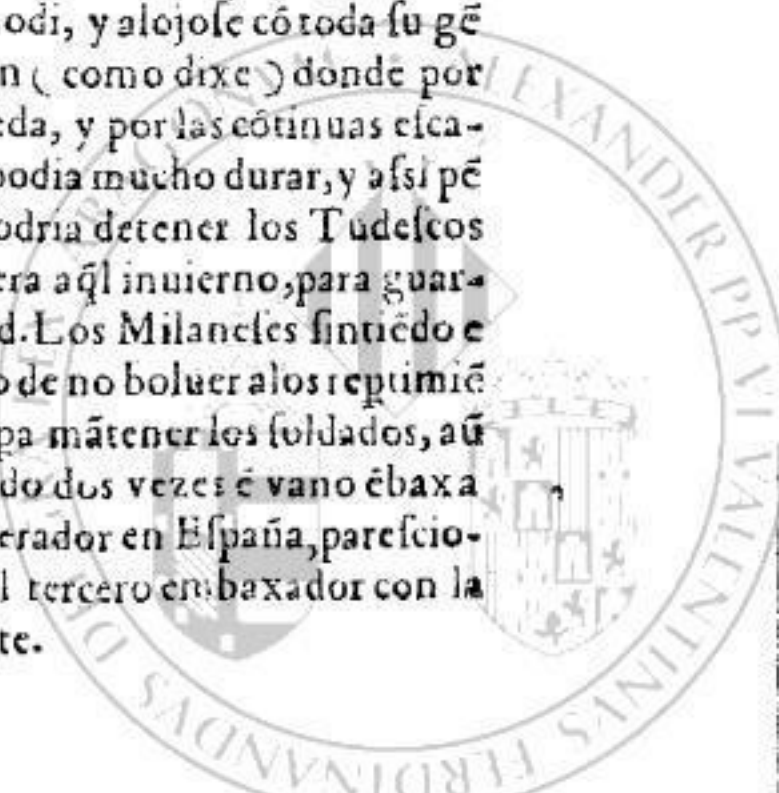 odi, y alojoſe cõ toda ſu gẽ
n ( como dixe ) donde por
eda, y por las cõtinuas eſca-
podia mucho durar, y aſsi pẽ
odria detener los Tudeſcos
era aq̃l inuierno, para guar-
d. Los Milaneſes ſintiẽdo e
o de no boluer a los repti­miẽ
pa mãtener los ſoldados, aũ
do dos vezes ẽ vano ẽbaxa
erador en Eſpaña, pareſcio-
l tercero embaxador con la
te.
ALEXANDER PP VI VALENTINVS FERDINANDVS